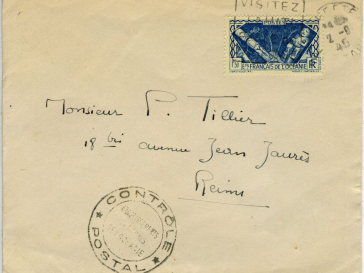 VISITEZ
2 -8
45
1F50 ETS FRANÇAIS DE L'OCEANIE RF
Monsieur P. Tillier
18 bis avenue Jean Jaurès
Reims
CONTRÔLE
POSTAL